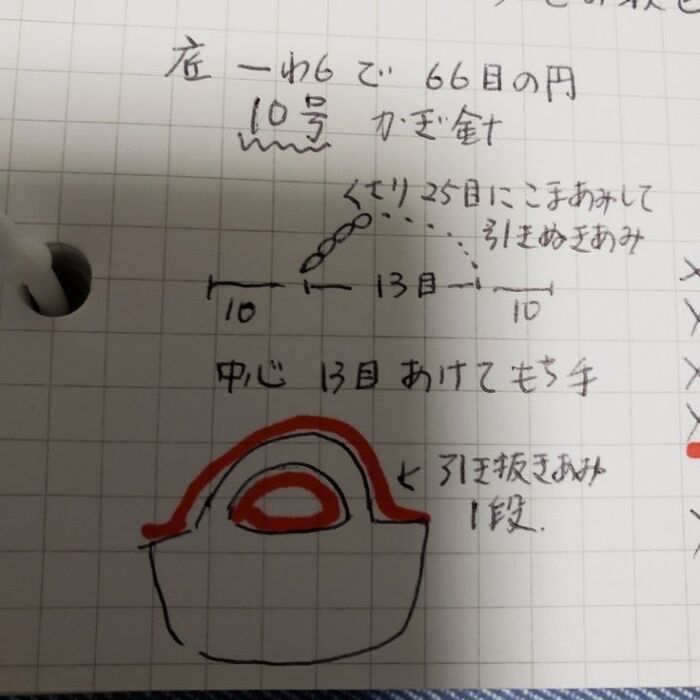 底 一わ6で 66目の円
10号 かぎ針
くさり25目にこまあみして
引きぬきあみ
13目
10
10
中心 13目 あけて もち手
引き抜きあみ
1段.